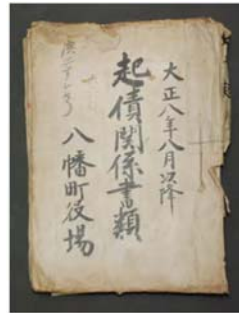 大正八年八月以降
起債関係書類
八幡町役場